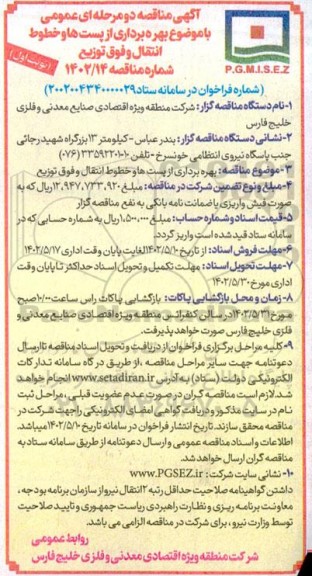 آگهی مناقصه دو مرحله ای عمومی
با موضوع بهره برداری از پست ها و خطوط
انتقال و فوق توزیع
شماره مناقصه ۱۴۰۲/۱۴
(نوبت اول)
P.G.M.I.S.E.Z
(شماره فراخوان در سامانه ستاد ۲۰۰۲۰۰۴۳۴۰۰۰۰۰۲۹)
۱-نام دستگاه مناقصه گزار: شرکت منطقه ویژه اقتصادی صنایع معدنی و فلزی
خلیج فارس
۲-نشانی دستگاه مناقصه گزار: بندر عباس - کیلومتر ۱۳ بزرگراه شهید رجائی
جنب پاسگاه نیروی انتظامی خونسرخ - تلفن ۲-۳۳۵۹۲۲۰۱ (۰۷۶)
۳-موضوع مناقصه: بهره برداری از پست ها و خطوط انتقال و فوق توزیع
۴-مبلغ و نوع تضمین شرکت در مناقصه: مبلغ ۱۲,۹۴۷,۷۳۳,۹۲۰ ریال که به
صورت فیش واریزی یا ضمانت نامه بانکی به نفع مناقصه گزار
۵-قیمت اسناد و شماره حساب: مبلغ ۱,۵۰۰,۰۰۰ ریال به شماره حسابی که در
سامانه ستاد قید شده است واریز گردد.
۶-مهلت فروش اسناد: از تاریخ ۱۴۰۲/۵/۱۰ لغایت پایان وقت اداری ۱۴۰۲/۵/۱۷
۷-مهلت تحویل اسناد: مهلت تکمیل و تحویل اسناد حداکثر تا پایان وقت
اداری مورخ ۱۴۰۲/۵/۳۰
۸-زمان و محل بازگشایی پاکات: بازگشایی پاکات راس ساعت ۱۰:۰۰ صبح
مورخ ۱۴۰۲/۵/۳۱ در سالن کنفرانس منطقه ویژه اقتصادی صنایع معدنی و
فلزی خلیج فارس صورت خواهد پذیرفت.
۹-کلیه مراحل برگزاری فراخوان از دریافت و تحویل اسناد مناقصه تا ارسال
دعوتنامه جهت سایر مراحل مناقصه، از طریق درگاه سامانه تدارکات
الکترونیکی دولت (ستاد) به آدرس www.setadiran.ir انجام خواهد
شد. لازم است مناقصه گران در صورت عدم عضویت قبلی، مراحل ثبت
نام در سایت مذکور و دریافت گواهی امضای الکترونیکی را جهت شرکت در
مناقصه محقق سازند. تاریخ انتشار فراخوان در سامانه تاریخ ۱۴۰۲/۵/۱۰ میباشد.
اطلاعات و اسناد مناقصه عمومی و ارسال دعوتنامه از طریق سامانه ستاد به
مناقصه گران ارسال خواهد شد.
۱۰-نشانی سایت شرکت: www.PGSEZ.ir
داشتن گواهینامه صلاحیت حداقل رتبه ۲ انتقال نیرو از سازمان برنامه بودجه،
معاونت برنامه ریزی و نظارت راهبردی ریاست جمهوری و تایید صلاحیت
توسط وزارت نیرو، برای شرکت در مناقصه الزامی می باشد.
روابط عمومی
شرکت منطقه ویژه اقتصادی معدنی و فلزی خلیج فارس